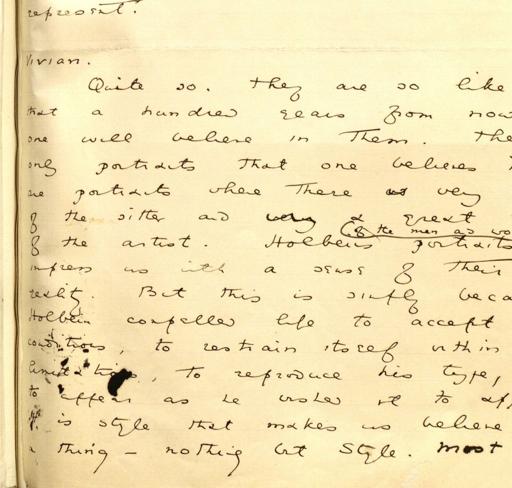 represent.
Vivian.
Quite so. They are so like
that a hundred years from now
one will believe in them. The
only portraits that one believes
are portraits where there is very
of the sitter and very a great
of the men and wo
of the artist. Holbein's portraits
impress us with a sense of their
reality. But this is simply beca
Holbein compelled life to accept
conditions, to restrain itself within
limitations, to reproduce his type,
to appear as he wished it to app
It is style that makes us believe
a thing - nothing but style. Most